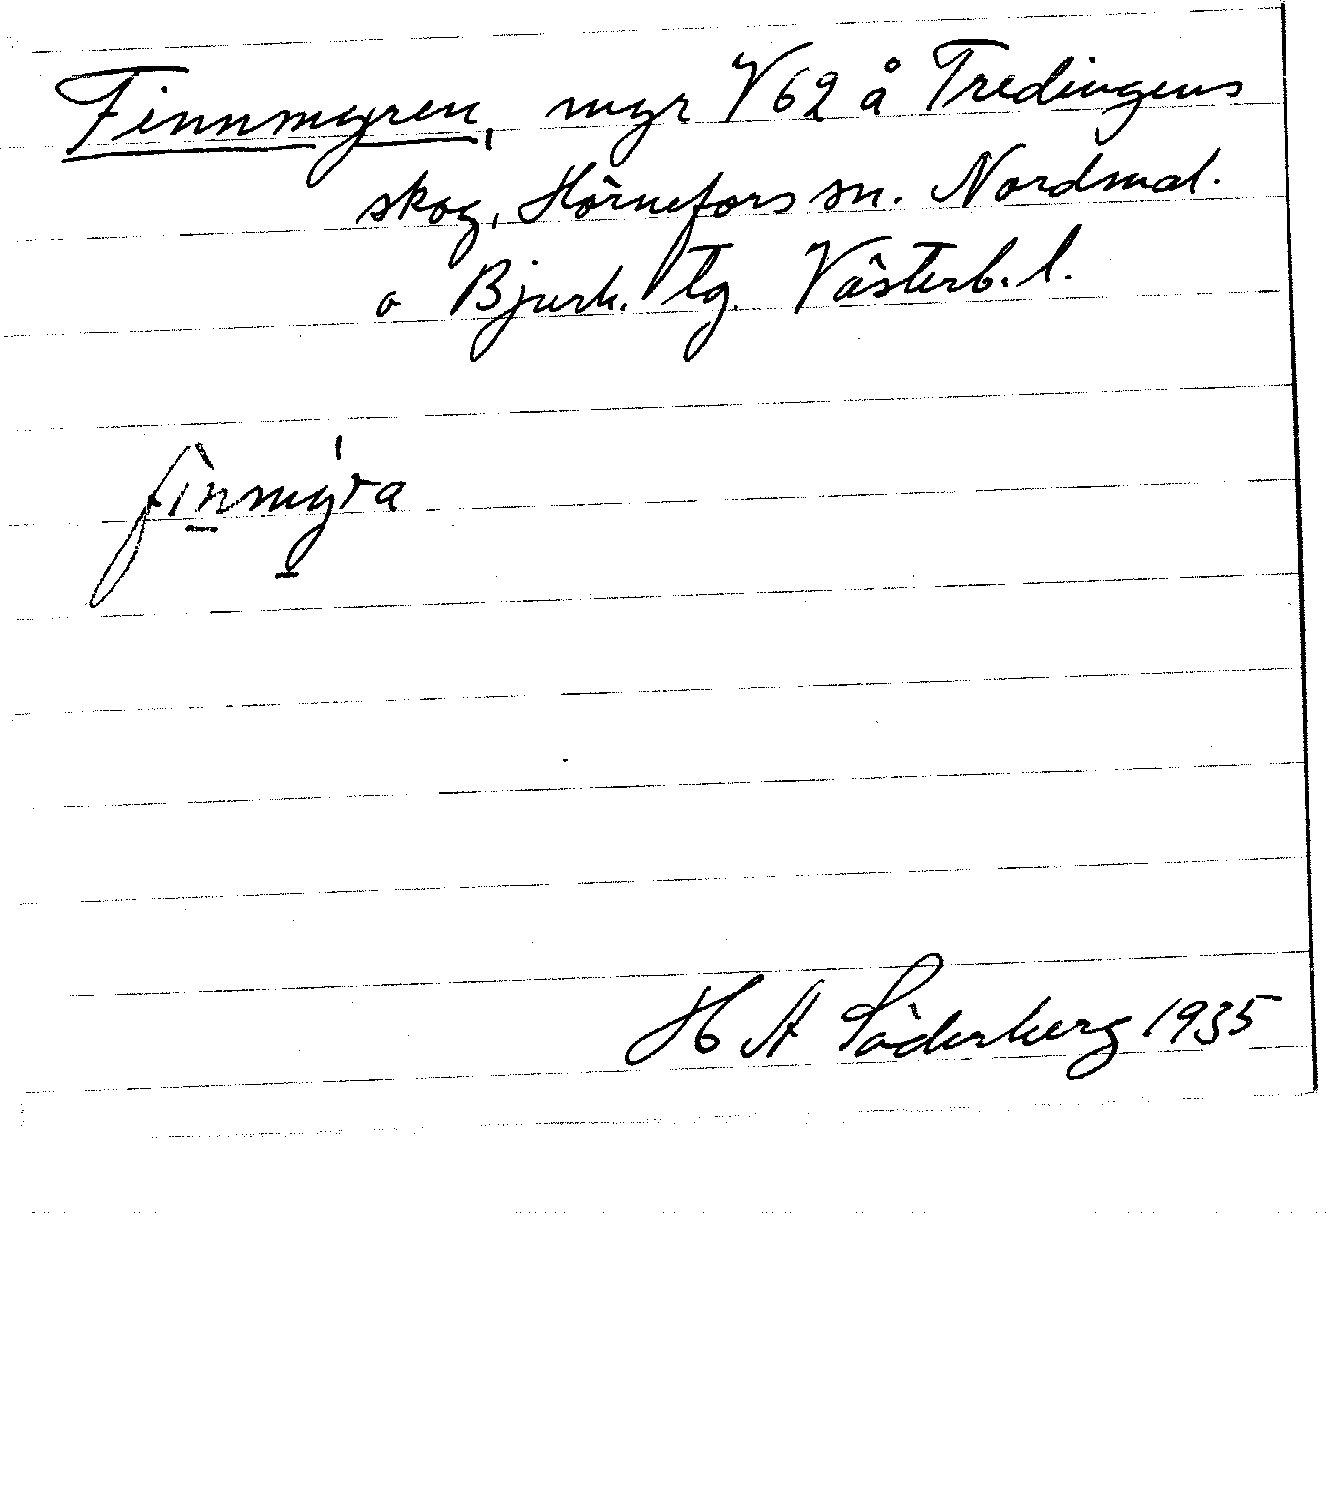 Finnmyren, myr V 62 å Tredingens
skog, Hörnefors sn. Nordmal.
o Bjurh. tg. Västerb. l.
fìnmýra
H A Söderberg 1935